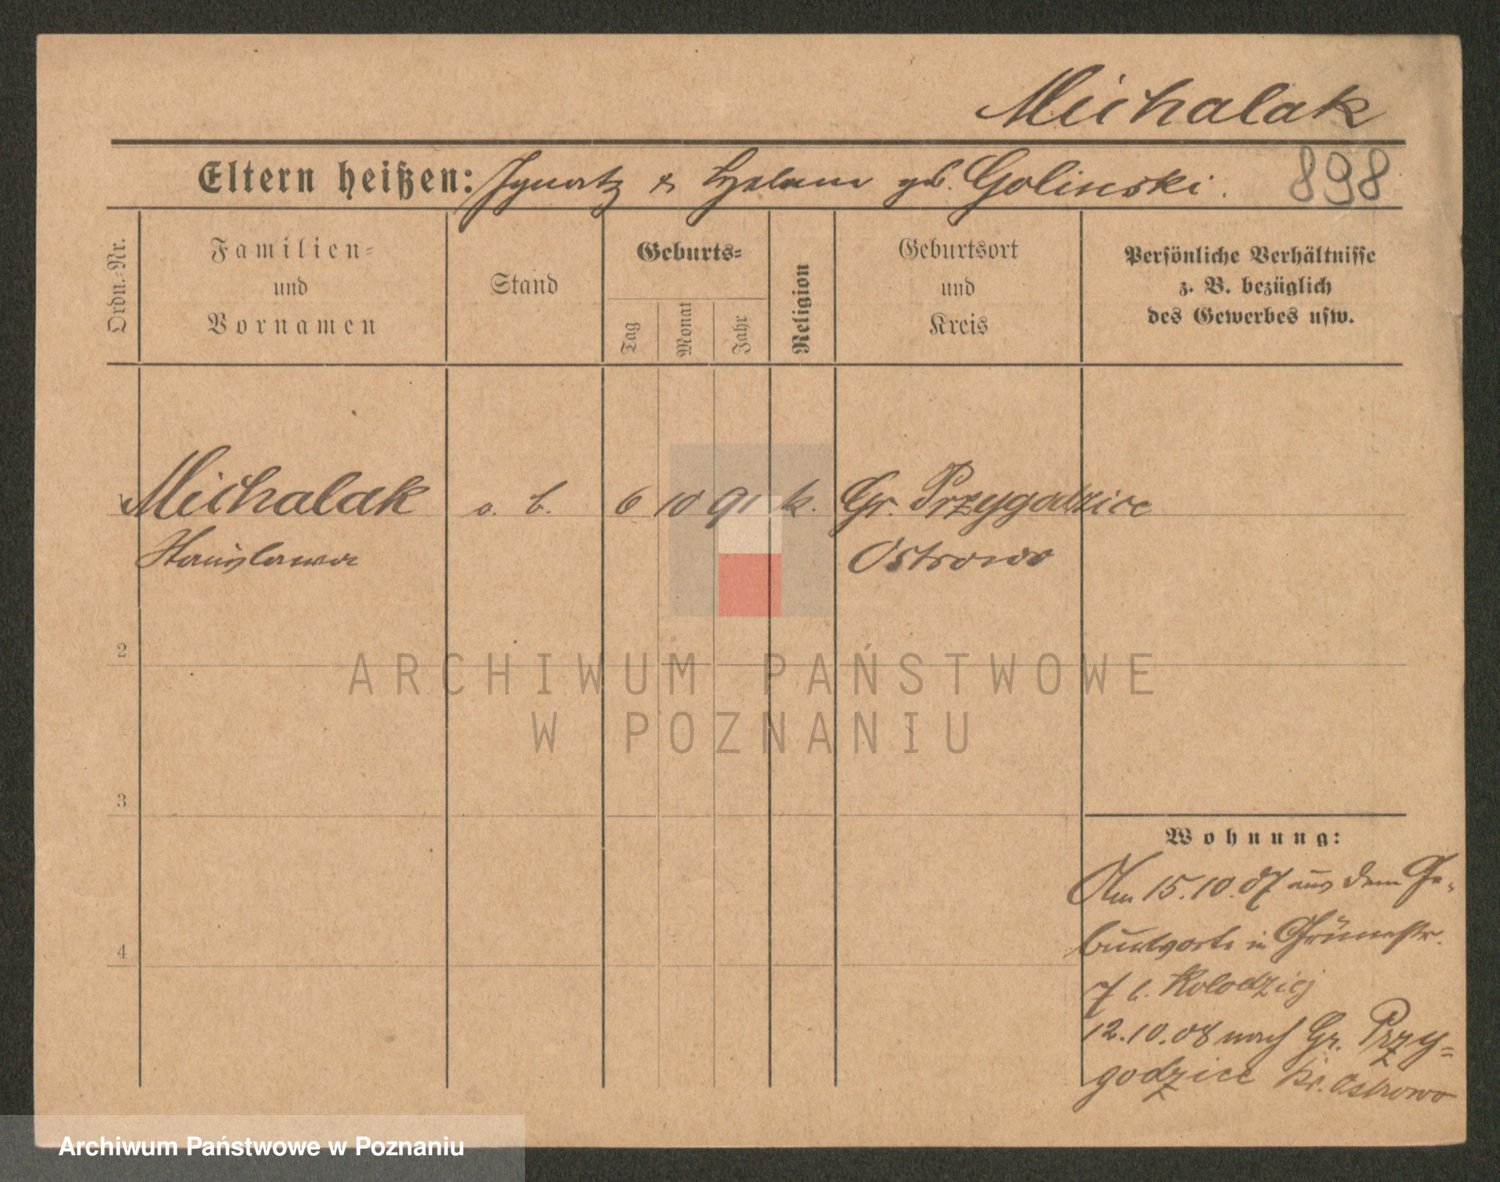 Michalak
Eltern heißen: Ignatz & Helene geb. Golinski. 898
Ordn.-Nr.
Familien- und Vornamen
Stand
Geburts-
Tag
Monat
Jahr
Religion
Geburtsort und Kreis
Persönliche Verhältnisse
z. B. bezüglich
des Gewerbes usw.
Michalak o. b. 6 10 91 k. Gr. Przygodzice
Stanislawa Ostrowo
2
ARCHIWUM PAŃSTWOWE
W POZNANIU
3
Wohnung:
Am 15.10.07 aus dem Ge-
burtsorte in Grünestr.
7 b. Kolodziej
4
12.10.08 nach Gr. Przy-
godzice Kr. Ostrowo
Archiwum Państwowe w Poznaniu